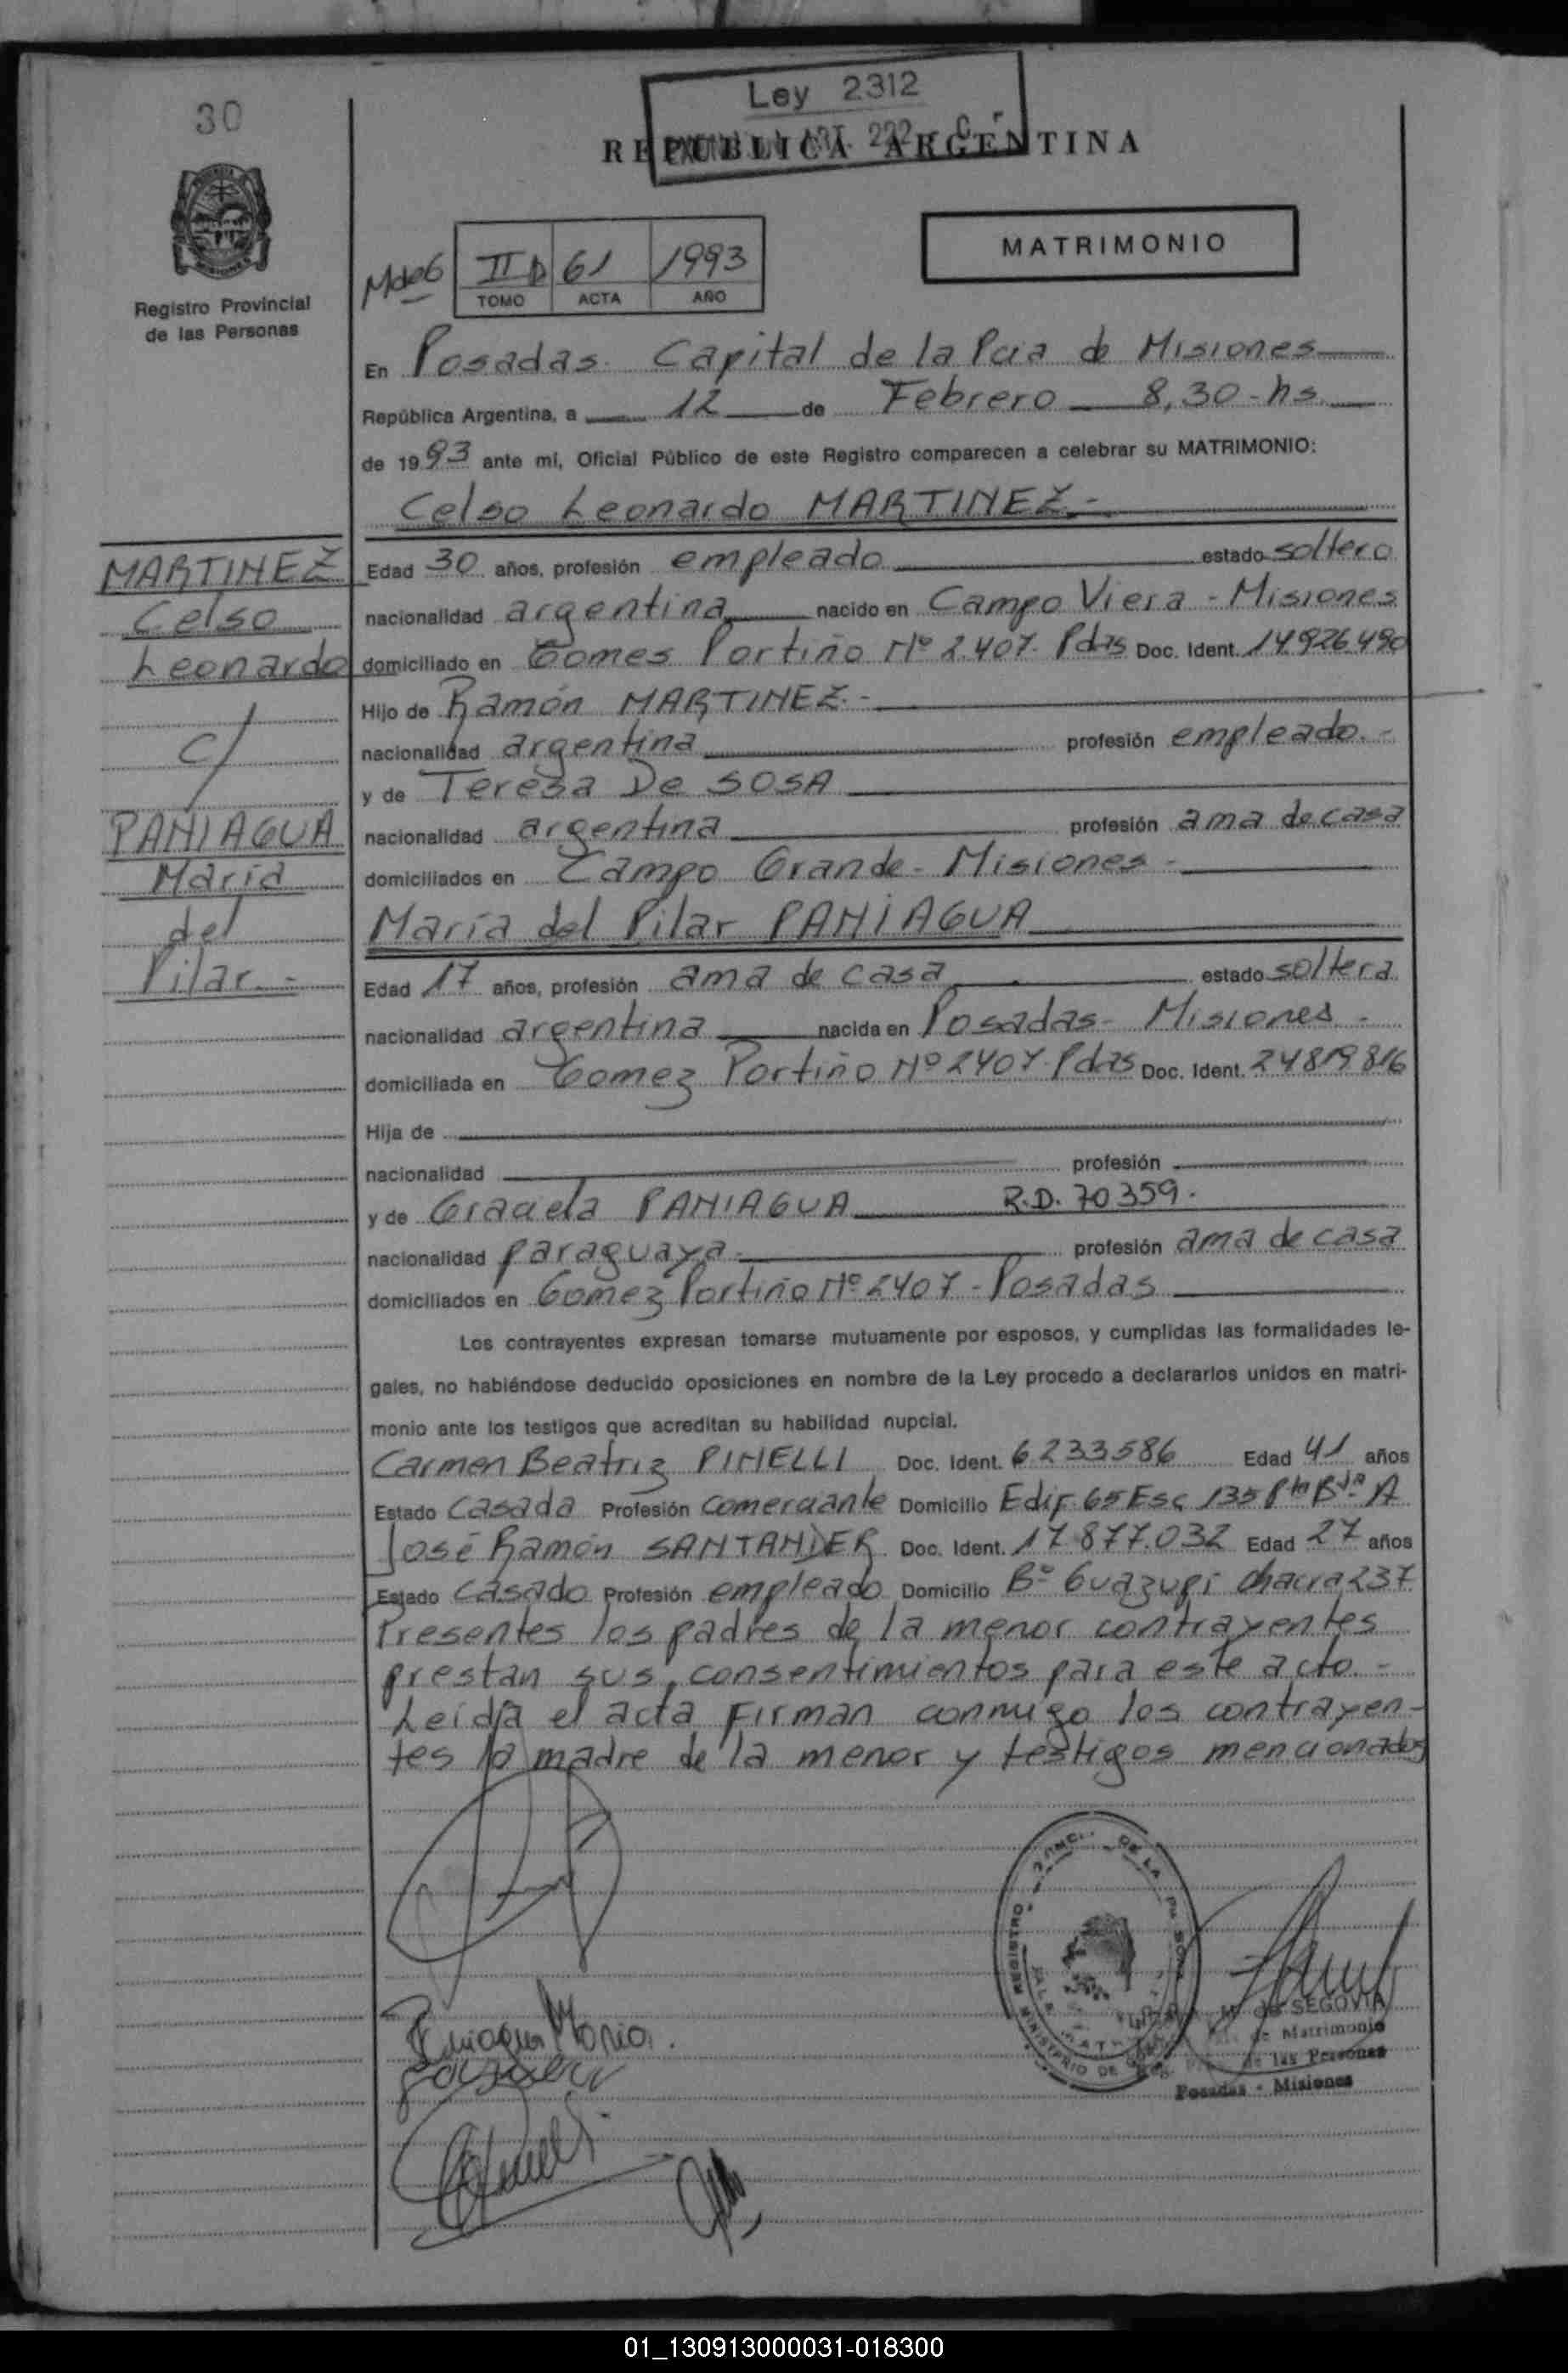 30
Ley 2312
REPUBLICA ARGENTINA
Registro Provincial
de las Personas
II D 61 1993
TOMO ACTA AÑO
MATRIMONIO
En Posadas. Capital de la Pcia de Misiones
República Argentina, a 12 de Febrero 8,30-hs
de 1993 ante mi, Oficial Público de este Registro comparecen a celebrar su MATRIMONIO:
Celso Leonardo MARTINEZ.-
MARTINEZ
Celso
Leonardo
c/
PANIAGUA
María
del
Pilar.-
Edad 30 años, profesión empleado estado soltero
nacionalidad argentina nacido en Campo Viera - Misiones
domiciliado en Gomes Portiño Nº 2.407. Pdas Doc. Ident. 14.926.490
Hijo de Ramón MARTINEZ.-
nacionalidad argentina profesión empleado.-
y de Teresa De SOSA
nacionalidad argentina profesión ama de casa
domiciliados en Campo Grande - Misiones -
María del Pilar PANIAGUA
Edad 17 años, profesión ama de casa estado soltera
nacionalidad argentina nacida en Posadas - Misiones -
domiciliada en Gomez Portiño Nº 2407. Pdas Doc. Ident. 24819816
Hija de
nacionalidad profesión
y de Graciela PANIAGUA R.D. 70359.
nacionalidad paraguaya profesión ama de casa
domiciliados en Gomez Portiño Nº 2407 - Posadas
Los contrayentes expresan tomarse mutuamente por esposos, y cumplidas las formalidades le-
gales, no habiéndose deducido oposiciones en nombre de la Ley procedo a declararlos unidos en matri-
monio ante los testigos que acreditan su habilidad nupcial.
Carmen Beatriz PINELLI Doc. Ident. 6233586 Edad 41 años
Estado Casada Profesión comerciante Domicilio Edif. 65 Esc 135 A
José Ramón SANTANDER Doc. Ident. 17.877.032 Edad 27 años
Estado Casado Profesión empleado Domicilio Bº Guazupi chacra 237
Presentes los padres de la menor contrayentes
prestan sus consentimientos para este acto -
Leida el acta Firman conmigo los contrayen-
tes la madre de la menor y testigos mencionados
Paniagua Maria.
de SEGOVIA
de Matrimonio
de las Personas
Posadas - Misiones
01_130913000031-018300